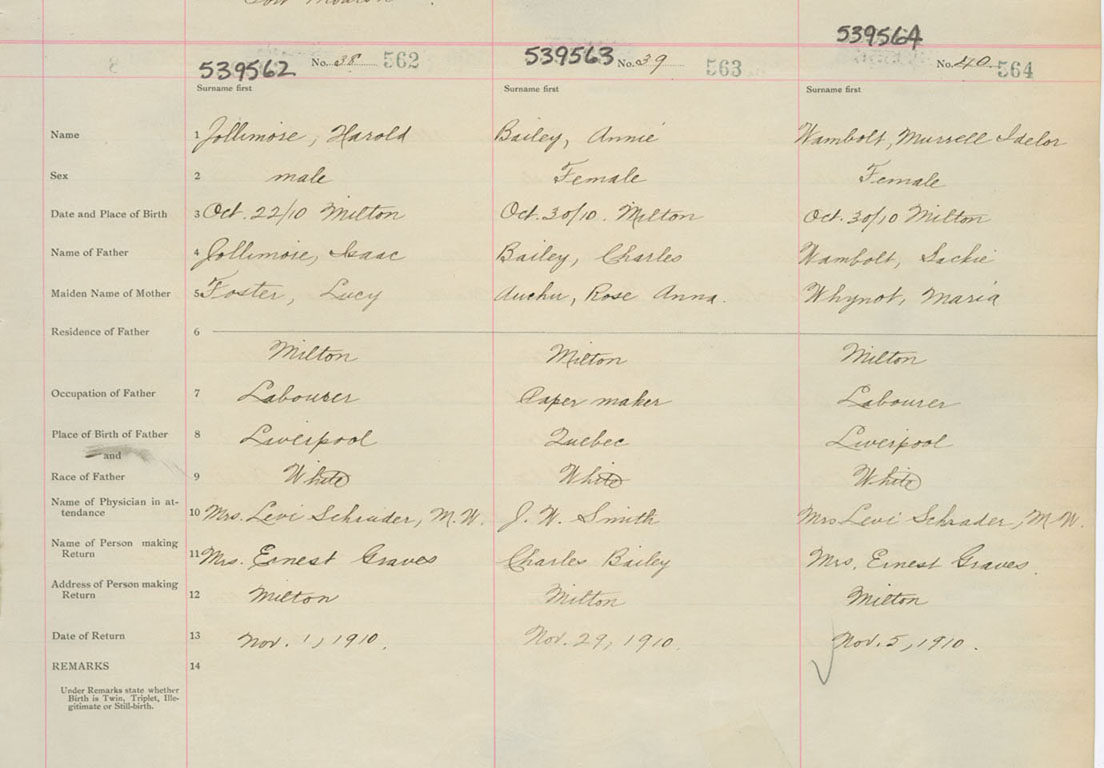 539562 No. 38 562 539563 No. 39 563 539564 No. 40 564
Surname first Surname first Surname first
Name 1 Jollimore, Harold Bailey, Annie Wambolt, Murrell
Sex 2 male Female Female
Date and Place of Birth 3 Oct. 22/10 Milton Oct. 30/10. Milton Oct. 30/10 Milton
Name of Father 4 Jollimore, Isaac Bailey, Charles Wambolt,
Maiden Name of Mother 5 Foster, Lucy Rose Anna. Whynot, Maria
Residence of Father 6
Milton Milton Milton
Occupation of Father 7 Labourer Paper maker Labourer
Place of Birth of Father 8 Liverpool Quebec Liverpool
and
Race of Father 9 White White White
Name of Physician in at-
tendance 10 Mrs. Levi Schrader, M.W. J. W. Smith Mrs Levi Schrader, M.W.
Name of Person making
Return 11 Mrs. Ernest Graves Charles Bailey Mrs. Ernest Graves.
Address of Person making
Return 12 Milton Milton Milton
Date of Return 13 Nov. 1, 1910. Nov. 29, 1910. Nov. 5, 1910.
REMARKS 14
Under Remarks state whether
Birth is Twin, Triplet, Ille-
gitimate or Still-birth.